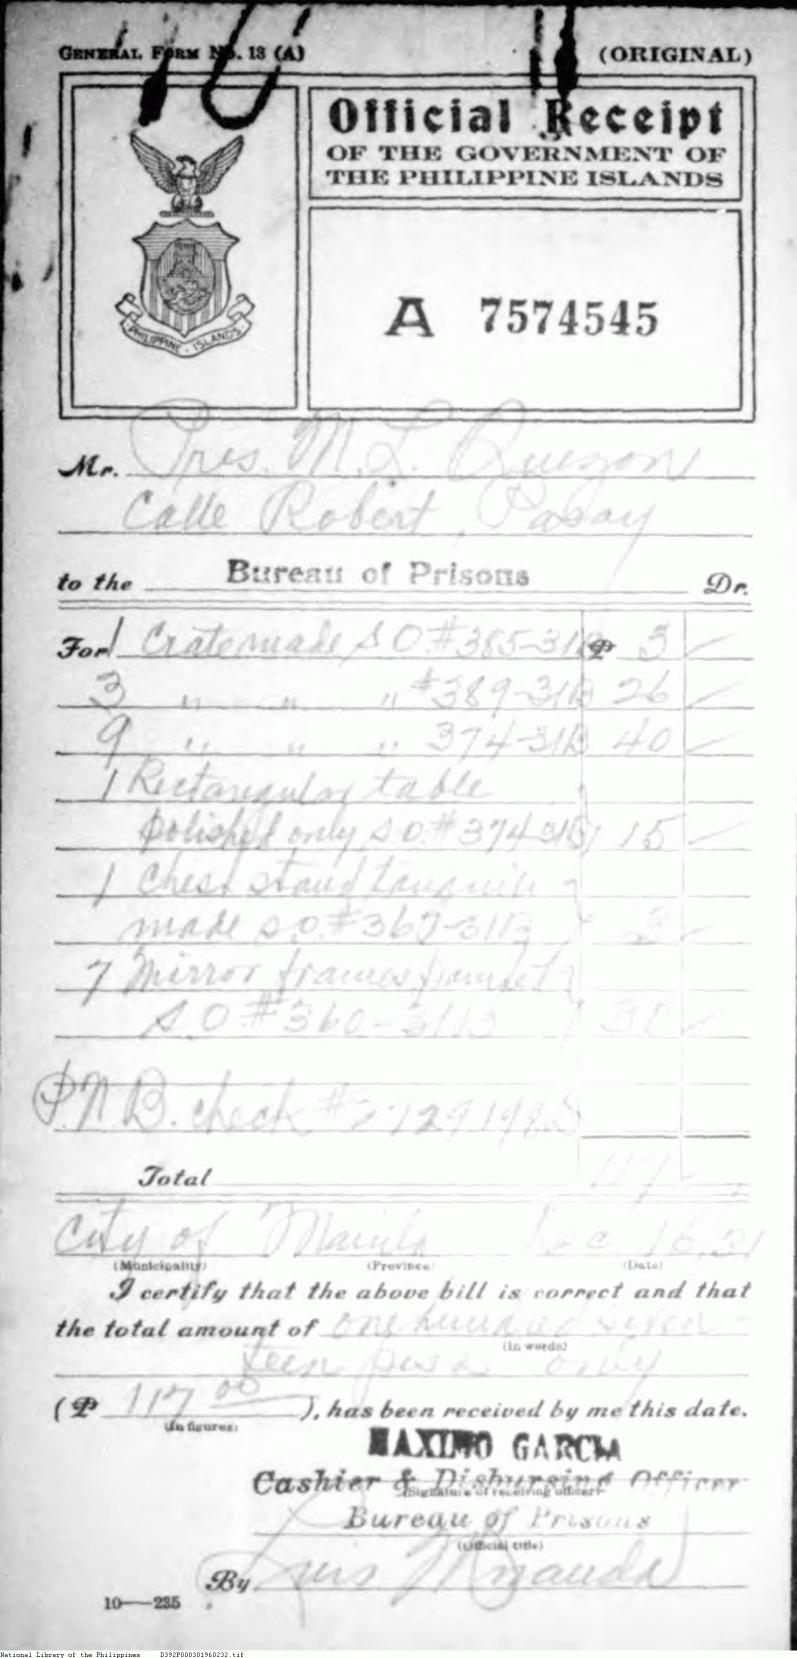 GENERAL FORM No. 13 (A) (ORIGINAL)
Official Receipt
OF THE GOVERNMENT OF
THE PHILIPPINE ISLANDS
PHILIPPINE ISLANDS
A 7574545
Mr. Pres. M. L. Quezon
Calle Robert, Pasay
to the Bureau of Prisons Dr.
For 1 Crate made S.O.# 385-31B ₱ 3
3 " " " #389-31B 26
9 " " " 374-31B 40
1 Rectangular table
polished only S.O.# 374-31B 15
1 Chess stand
made S.O.# 367-31B 3
7 Mirror frames
S.O.# 360-31B 30
P.N.B. check #
Total 117
City of Manila Dec 16, 31
(Municipality) (Province) (Date)
I certify that the above bill is correct and that
the total amount of one hundred seven-
(In words)
teen pesos only
(₱ 117 00 ), has been received by me this date.
(In figures)
MAXIMO GARCIA
Cashier & Disbursing Officer
(Signature of receiving officer)
Bureau of Prisons
(Official title)
By Luis Miranda
10—235
National Library of the Philippines D392P000301960232.tif